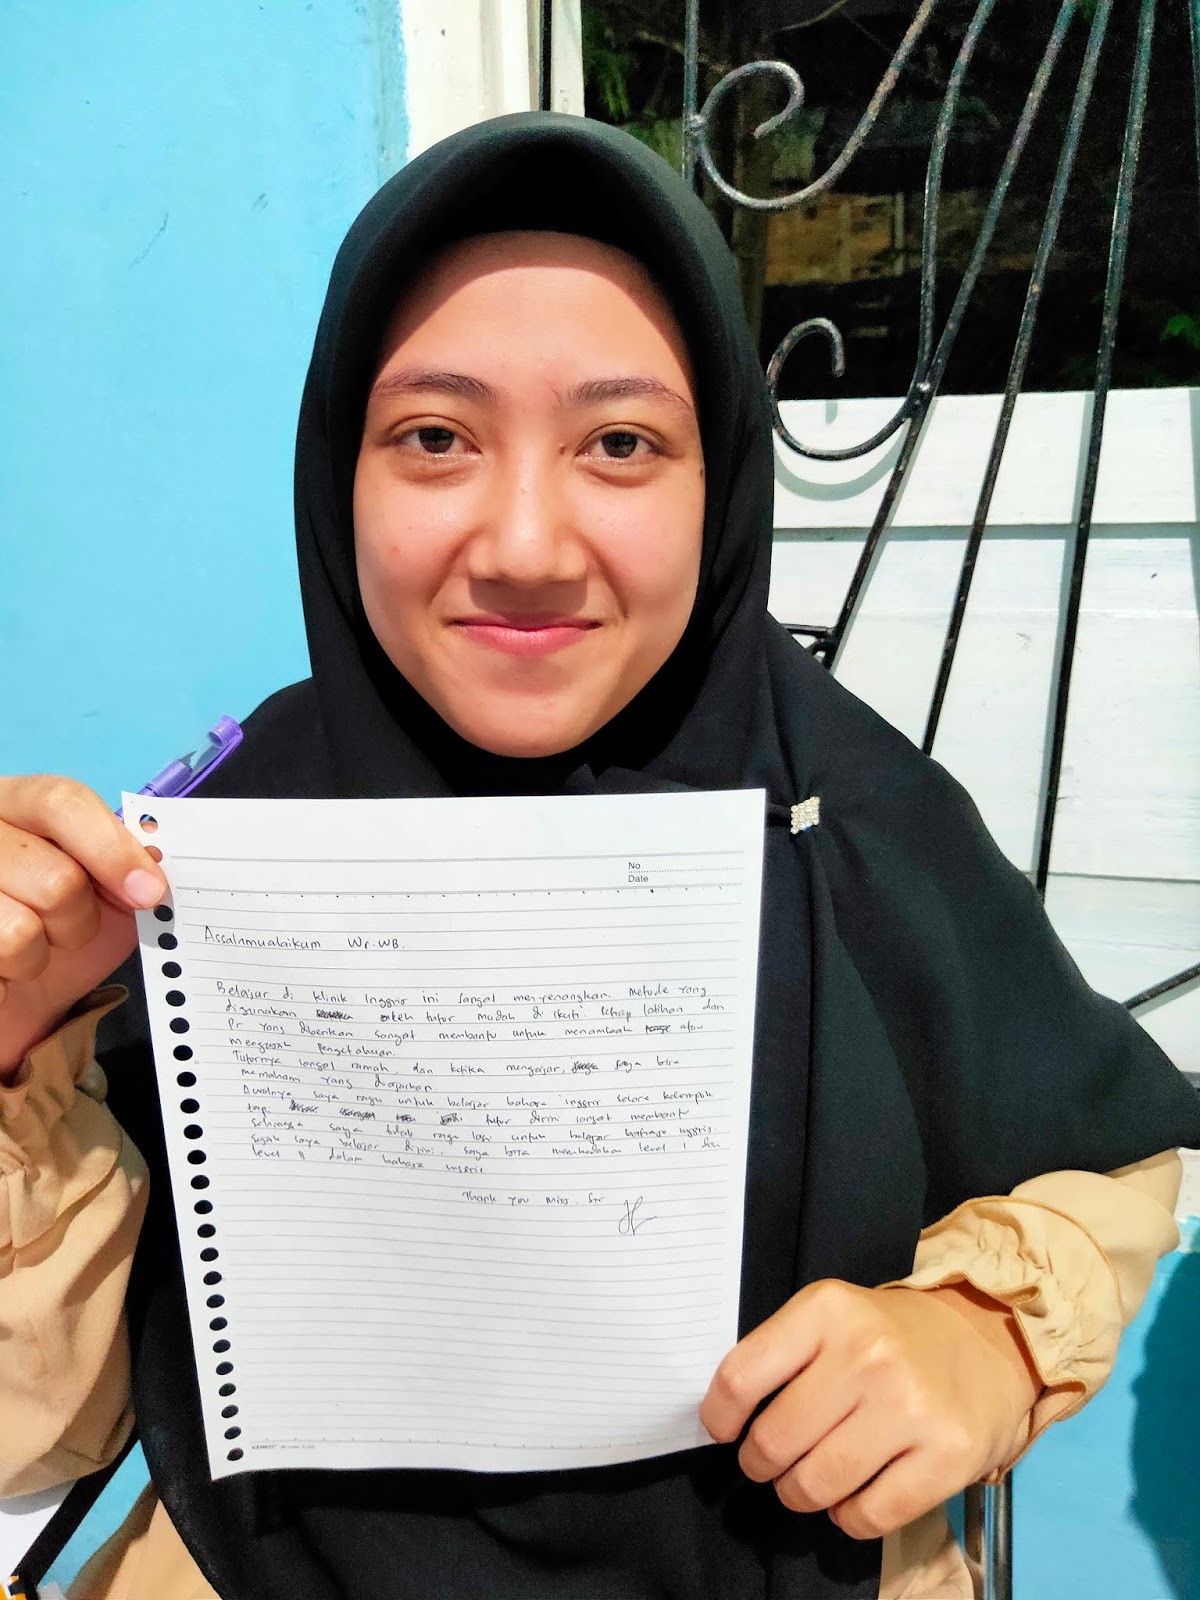 No
Date
Assalamualaikum Wr.WB.
Belajar di klinik Inggris ini sangat menyenangkan metode yang
digunakan oleh tutor mudah di ikuti. Setiap latihan dan
Pr yang diberikan sangat membantu untuk menambah atau
mengasah pengetahuan.
Tutornya sangat ramah, dan ketika mengajar, saya bisa
memahami yang diajarkan.
Awalnya saya ragu untuk belajar bahasa inggris secara kelompok
tapi tutor disini sangat membantu
sehingga saya tidak ragu lagi untuk belajar bahasa inggris.
Sejak saya belajar disini, saya bisa membedakan level 1 dan
level 11 dalam bahasa inggris
Thank you miss.